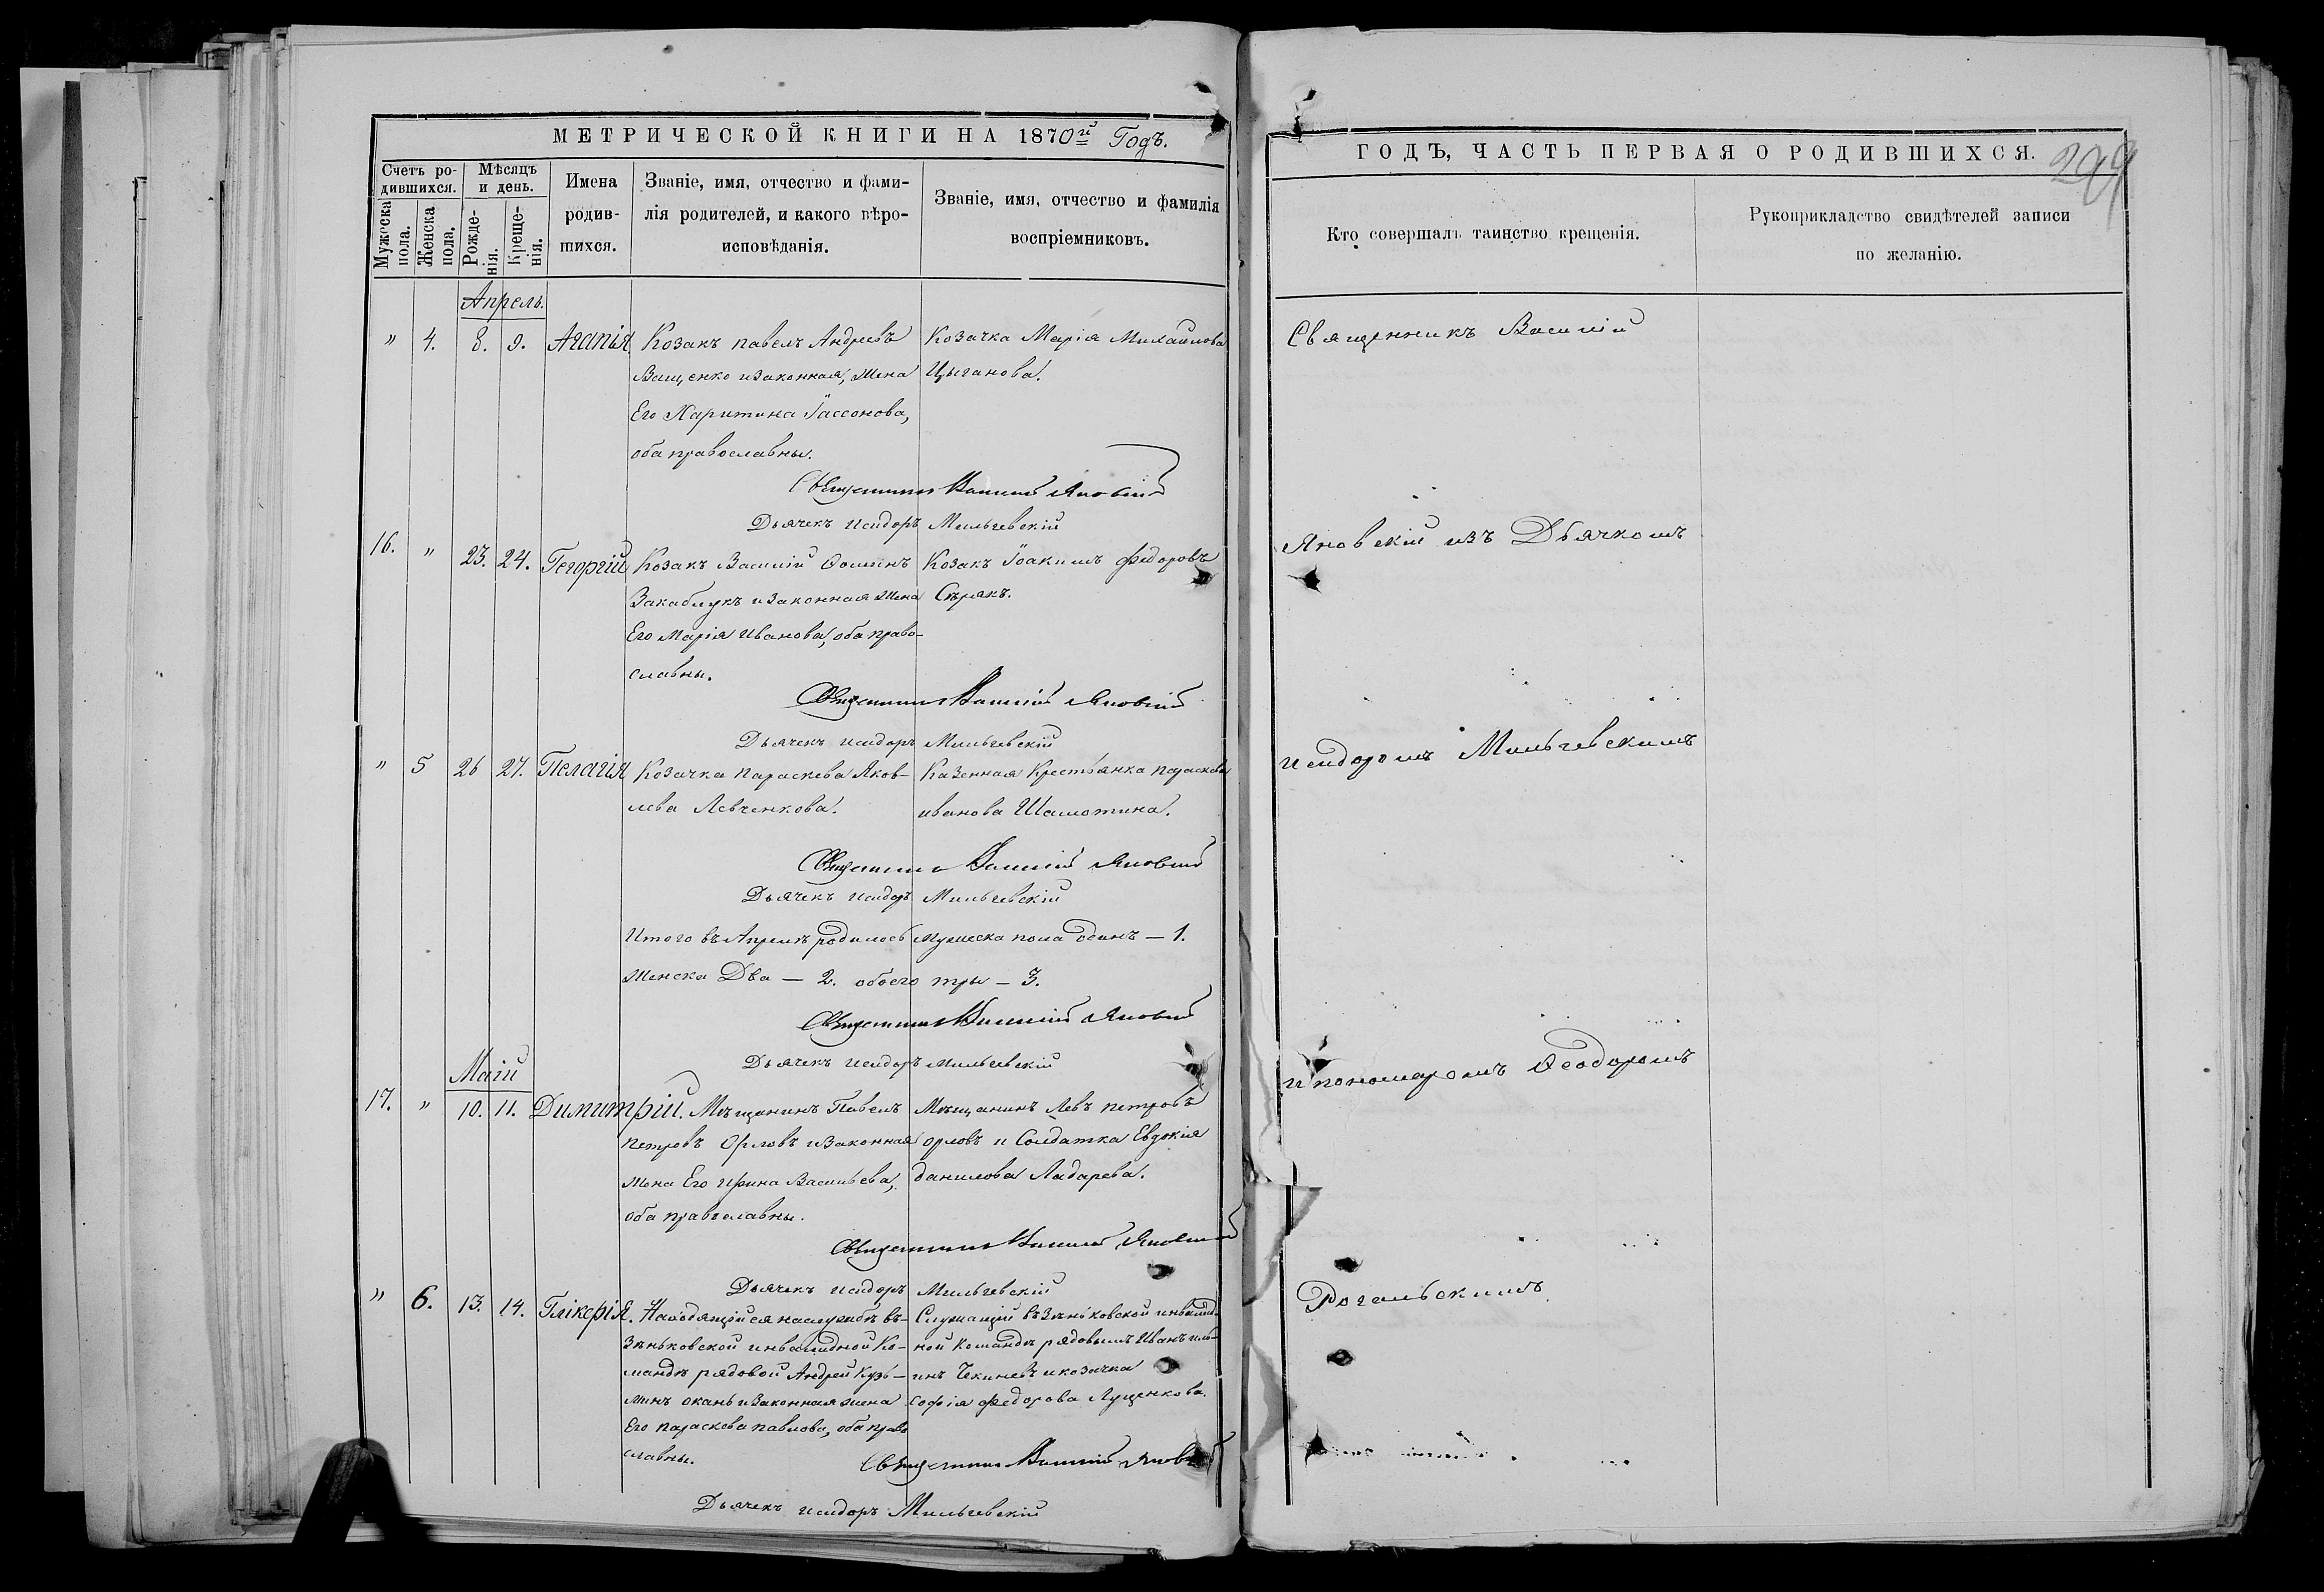 МЕТРИЧЕСКОЙ КНИГИ НА 1870й Годъ.
Счетъ родившихся.
Мужеска пола.
Женска пола.
Мѣсяцъ и день.
Рожденія.
Крещенія.
Имена родившихся.
Званіе, имя, отчество и фамилія родителей, и какого вѣроисповѣданія.
Званіе, имя, отчество и фамилія воспріемниковъ.
Апрель.
" 4. 8. 9. Агапія
Козакъ павелъ Андреевъ
Ващенко изаконная, жена
Его Харитина Іассонова,
оба православны.
Козачка Марія Михайлова
Цыганова.
Священникъ Василій Яновскій
Дьячекъ исидоръ Мильчевскій
16. " 23. 24. Гегоргій
Козакъ Василій Ѳоминъ
Закаблукъ изаконная жена
Его Марія иванова, оба право-
славны.
Козакъ Іоакимъ Федоровъ
Сѣрякъ.
Священникъ Василій Яновскій
Дьячекъ исидоръ Мильчевскій
" 5 26 27. Пелагія
Козачка параскева Яков-
лева Левченкова.
Казенная Крестьянка параскева
иванова Шамотина.
Священникъ Василій Яновскій
Дьячекъ исидоръ Мильчевскій
Итого въ Апрелѣ родилось мужеска пола одинъ — 1.
женска Два — 2. обоего три — 3.
Священникъ Василій Яновскій
Дьячекъ исидоръ мильчевскій
Маій
17. " 10. 11. Димитрій.
Мѣщанинъ Павелъ
петровъ Орловъ изаконная
жена Его ирина Васильева,
оба православны.
Мѣщанинъ Левъ петровъ
орловъ и Солдатка Евдокія
данилова Ладарева.
Священникъ Василій Яновскій
Дьячекъ исидоръ Мильчевскій
" 6. 13. 14. Глікерія.
Находящійся наслужбѣ въ-
Зѣньковской инвалидной Ко-
мандѣ рядовой Андрей Кузь-
минъ оканъ изаконная жена
Его параскева павлова, оба право
славны.
Служащій въ Зѣньковской инвалид-
ной Командѣ рядовымъ Иванъ иль-
инъ Чекиневъ икозачка
Софія Федорова Луценкова.
Священникъ Василій Яновскій
Дьячекъ исидоръ Мильчевскій
ГОДЪ, ЧАСТЬ ПЕРВАЯ О РОДИВШИХСЯ.
299
Кто совершалъ таинство крещенія.
Рукоприкладство свидѣтелей записи
по желанію.
Священникъ Василій
Яновскій изъ Дьячкомъ
исидоромъ Мильчевскимъ
ипономаромъ Ѳеодоромъ
Рогальскимъ